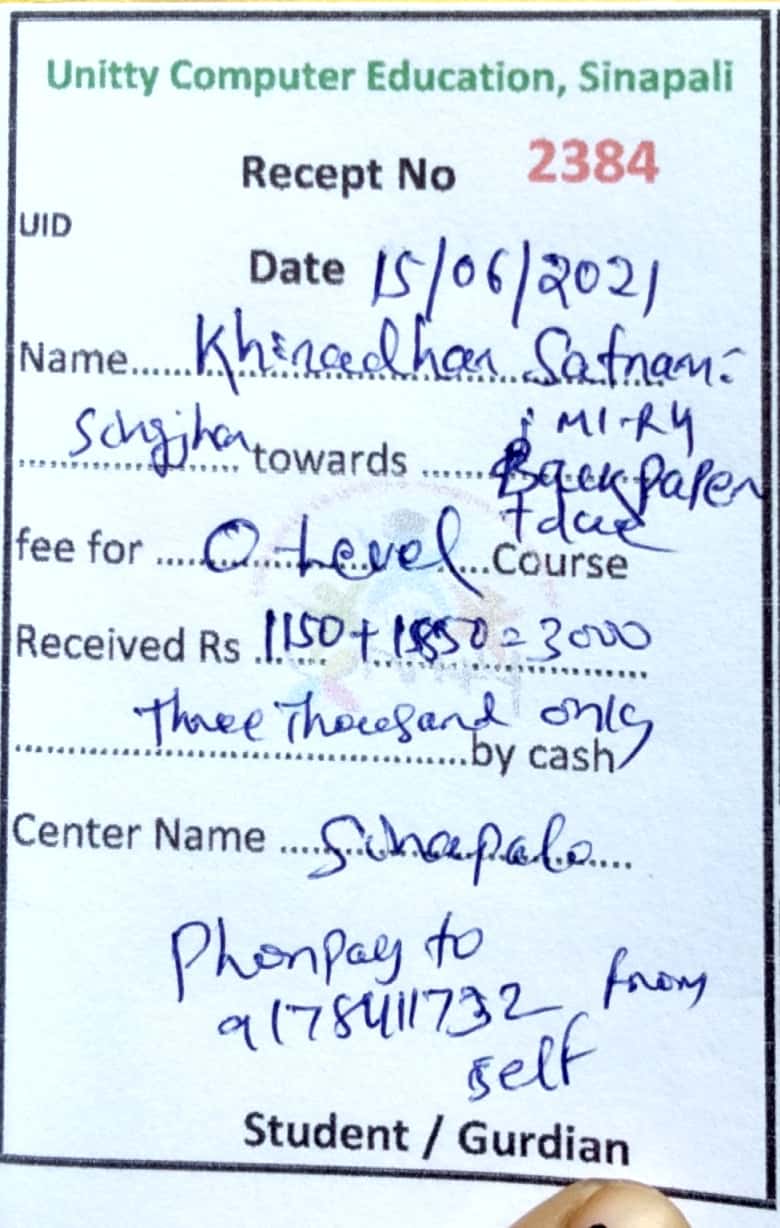 Unitty Computer Education, Sinapali
Recept No 2384
UID
Date 15/06/2021
Name...... Khiradhar Satnami
Singjhar towards ...... M1-R4
Back paper
+ due
fee for ...... O-Level ...Course
Received Rs 1150+1850=3000
Three Thousand only
by cash
Center Name .... Sinapali
Phonpay to
9178411732 from
self
Student / Gurdian